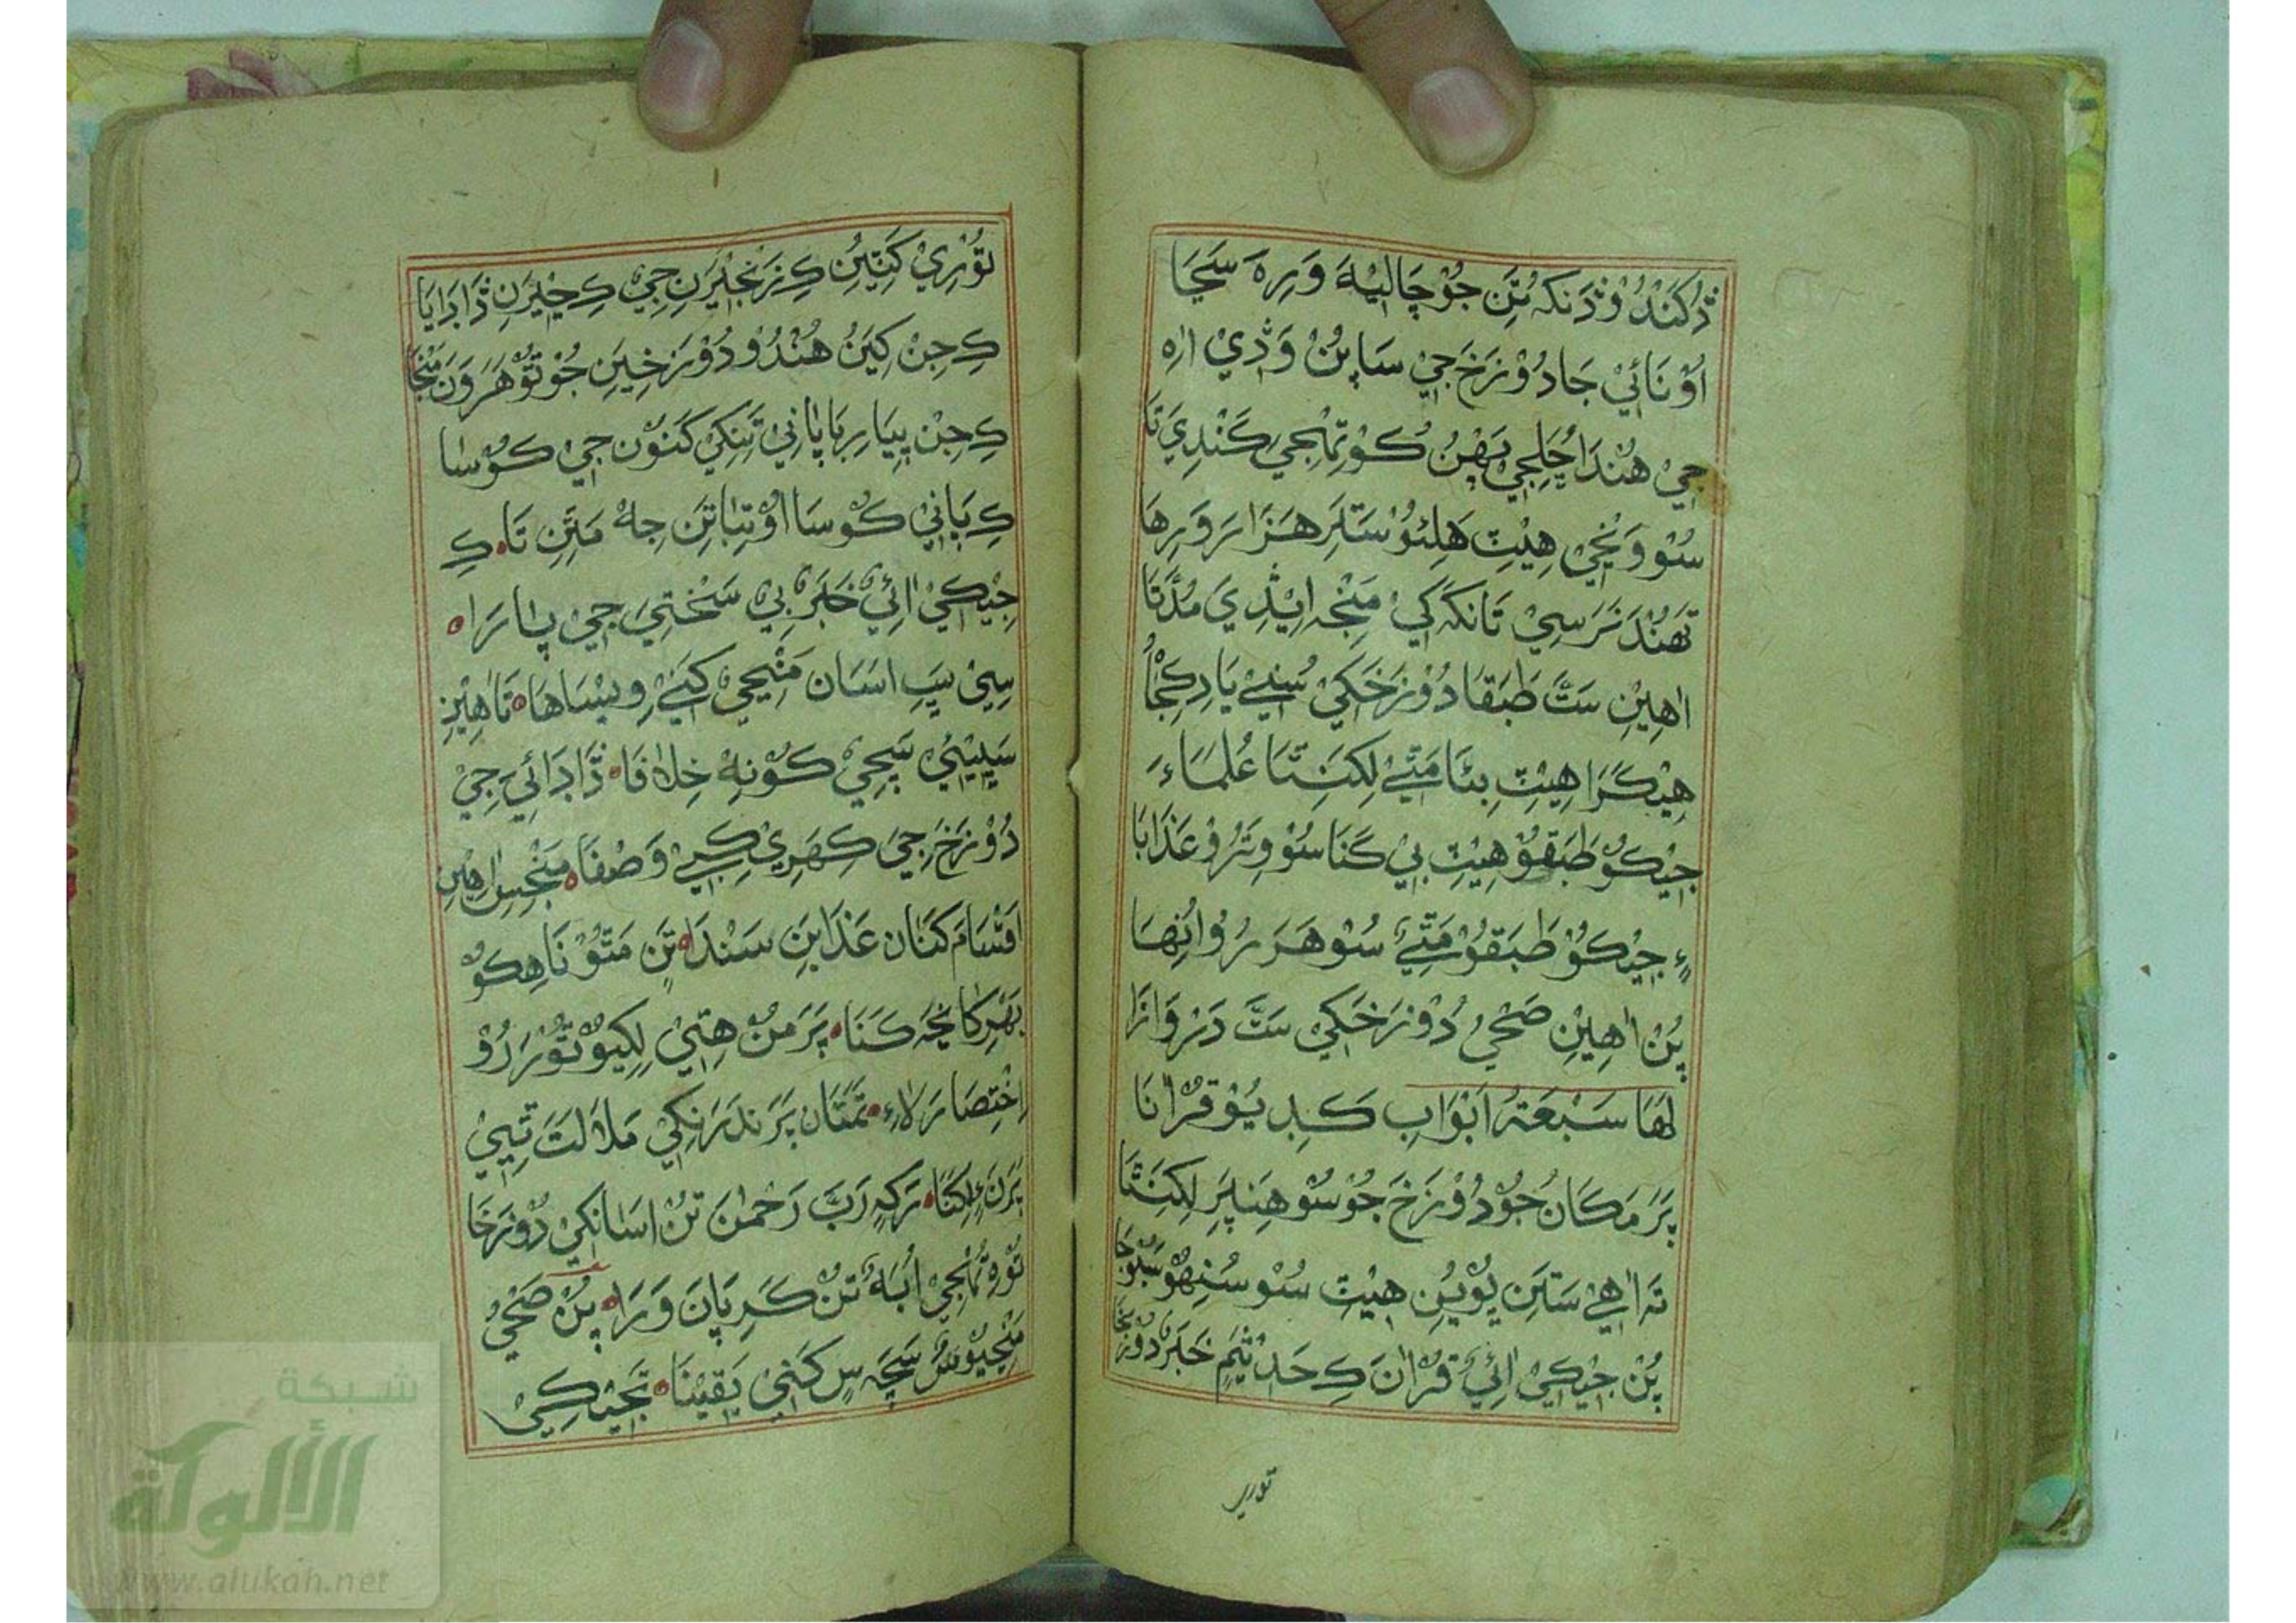 ڎُکَنْدُ وْڎَنکہ تَنِ جُوْ چَالِيْهَ وَرِهَ سَڃَا
اُوْنَائِيْ جَا دُوْزَخَ جِيْ سَاپُنْ وَڎِيْ
جِيْ هُنْدَا چَلِجِيْ پَهْڻُ کُو تِنْهْجِيْ کَنْدِيَ تَا
سُوْ وَڃِيْ هِيْٺِ هَلِئُوْ سَتَرِ هَزَارَ وَرِهَا
تَهْنْدَ نَرَسِيْ تَانکَہ کِيْ مَنْجِہ اِيْڎِيَ مُدَّتَا
اٰهِيْنِ سَتَّ طَبَقَا دُوْزَخَکِيْ سُڻِيْ يَادِ کِجَا
هِيْکَڙَا هِيْٺِ ٻِئَا مَٿٖيْ لِکَنِتَا عُلَمَاءَ
جِيْکُوْ طَبَقُوْ هِيْٺِ ٻِيْ کَنَا سُوْ وِتَرُوْ عَذَابَا
ءِ جِيْکُوْ طَبَقُوْ مَٿٖيْ سُوْ هَرَرُوْ اُنِهَا
پُنْ اٰهِيْنِ صَحِيْ دُوْزَخَکِيْ سَتَّ دَرْوَازَا
لَهَا سَبْعَةُ اَبْوَابٍ کَڍِيُوْ قُرْاٰنَا
پَرَ مَکَانُ جُوْ دُوْزَخَ جُوْ سُوْ هِنَپَرِ لِکَنِتَا
تَہ اٰهِيْ سَتَنِ ڀُوْيُنِ هِيْٺِ سُوْ سُڻِهُوْ سَڀُوْجَا
پُنْ جِيْکِيْ اٰئِيْ قُرْاٰنَ کِ حَدِيْثِمِ خَبَرَ دُوْزَخَا
توري
تُوْرِيْ کَتِيَنِ کِ زَنْجِيْرَنِ جِيْ کِ ڃِيْرَنِ ڎَاڍَايَا
کِ جِنْ کِيَنُ هُنْدُوْ دُوْزَخِيَنِ جُوْ تُوْهَرَ وَنَ مَنْجَا
کِ جِنْ پِيَارِبَا پَاڻِيْ تَنِکِيْ کَنَوْن جِيْ کُوْسَا
کِ پَاڻِيْ کُوْسَا اوْتِبَا تَنِ جِہ مَٿَنِ تَا کِ
جِيْکِيْ اٰئِيْ خَبَرَ ٻِيْ سَخْتِيَ جِيْ پَارَا
سِيْ سَڀِ اَسَان مَڃِيْ کَنٖيْ وِيْسَاهَا تَا هِيْنِ
سَڀِيْئِيْ سَچِيْ کُوْنِهْ خِلَافَا ڎَاڍَائِيَ جِيْ
دُوْزَخَ جِيَ کِهَرِيْ کِرِيْ وَصْفَا مَنْجِسِ اٰهِيْنِ
اَقْسَامَ کَنَان عَذَابَنِ سَنْدَا تَنِ مَتُوْ نَاهِ کُوْ
بَهْرِ کَا نِجَہ کَنَا پَرَ مُنْ هِتِيْ لِکِيُوْ تُوْرَرُوْ
اِخْتِصَارَ لَاءِ تَمَتَان پَرَنْدَرَنِکِيْ مَلَالَتَ تِيِيْ
پَرَنَ ءِ لِکَنَا رَکہِ رَبَّ رَحْمٰنَ تُنْ اَسَانکِيْ دُوْزَخَا
تُوْرِهْ تُنْهْجِيْ اُبَہ تُنْ کَرِ پَانَ وَرَا پُنْ صَحِيْ
مَڃِيُوْسُ سَچَہ سِ کَنٖيْ يَقِيْنَا تَجِيْکِيْ
شبكة
الألوكة
www.alukah.net